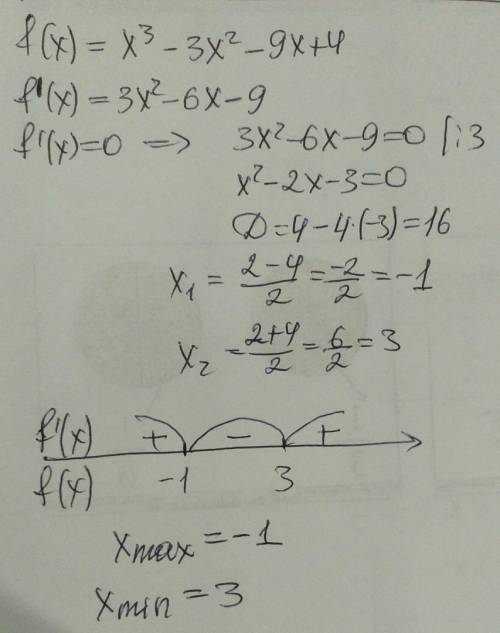 f(x) = x³ - 3x² - 9x + 4
f'(x) = 3x² - 6x - 9
f'(x) = 0 => 3x² - 6x - 9 = 0 |:3
x² - 2x - 3 = 0
D = 4 - 4·(-3) = 16
x₁ = (2-4)/2 = -2/2 = -1
x₂ = (2+4)/2 = 6/2 = 3
f'(x) + - +
f(x) -1 3
xmax = -1
xmin = 3